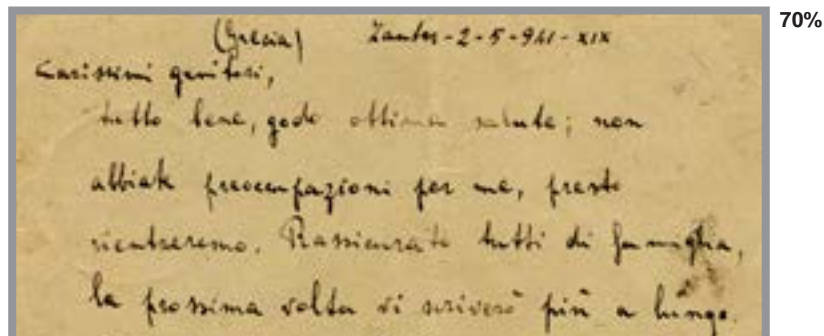 70%
(Grecia) Zante - 2 - 5 - 941 - XIX
Carissimi genitori,
tutto bene, godo ottima salute; non
abbiate preoccupazioni per me, presto
rientreremo. Rassicurate tutti di famiglia,
la prossima volta vi scriverò più a lungo.